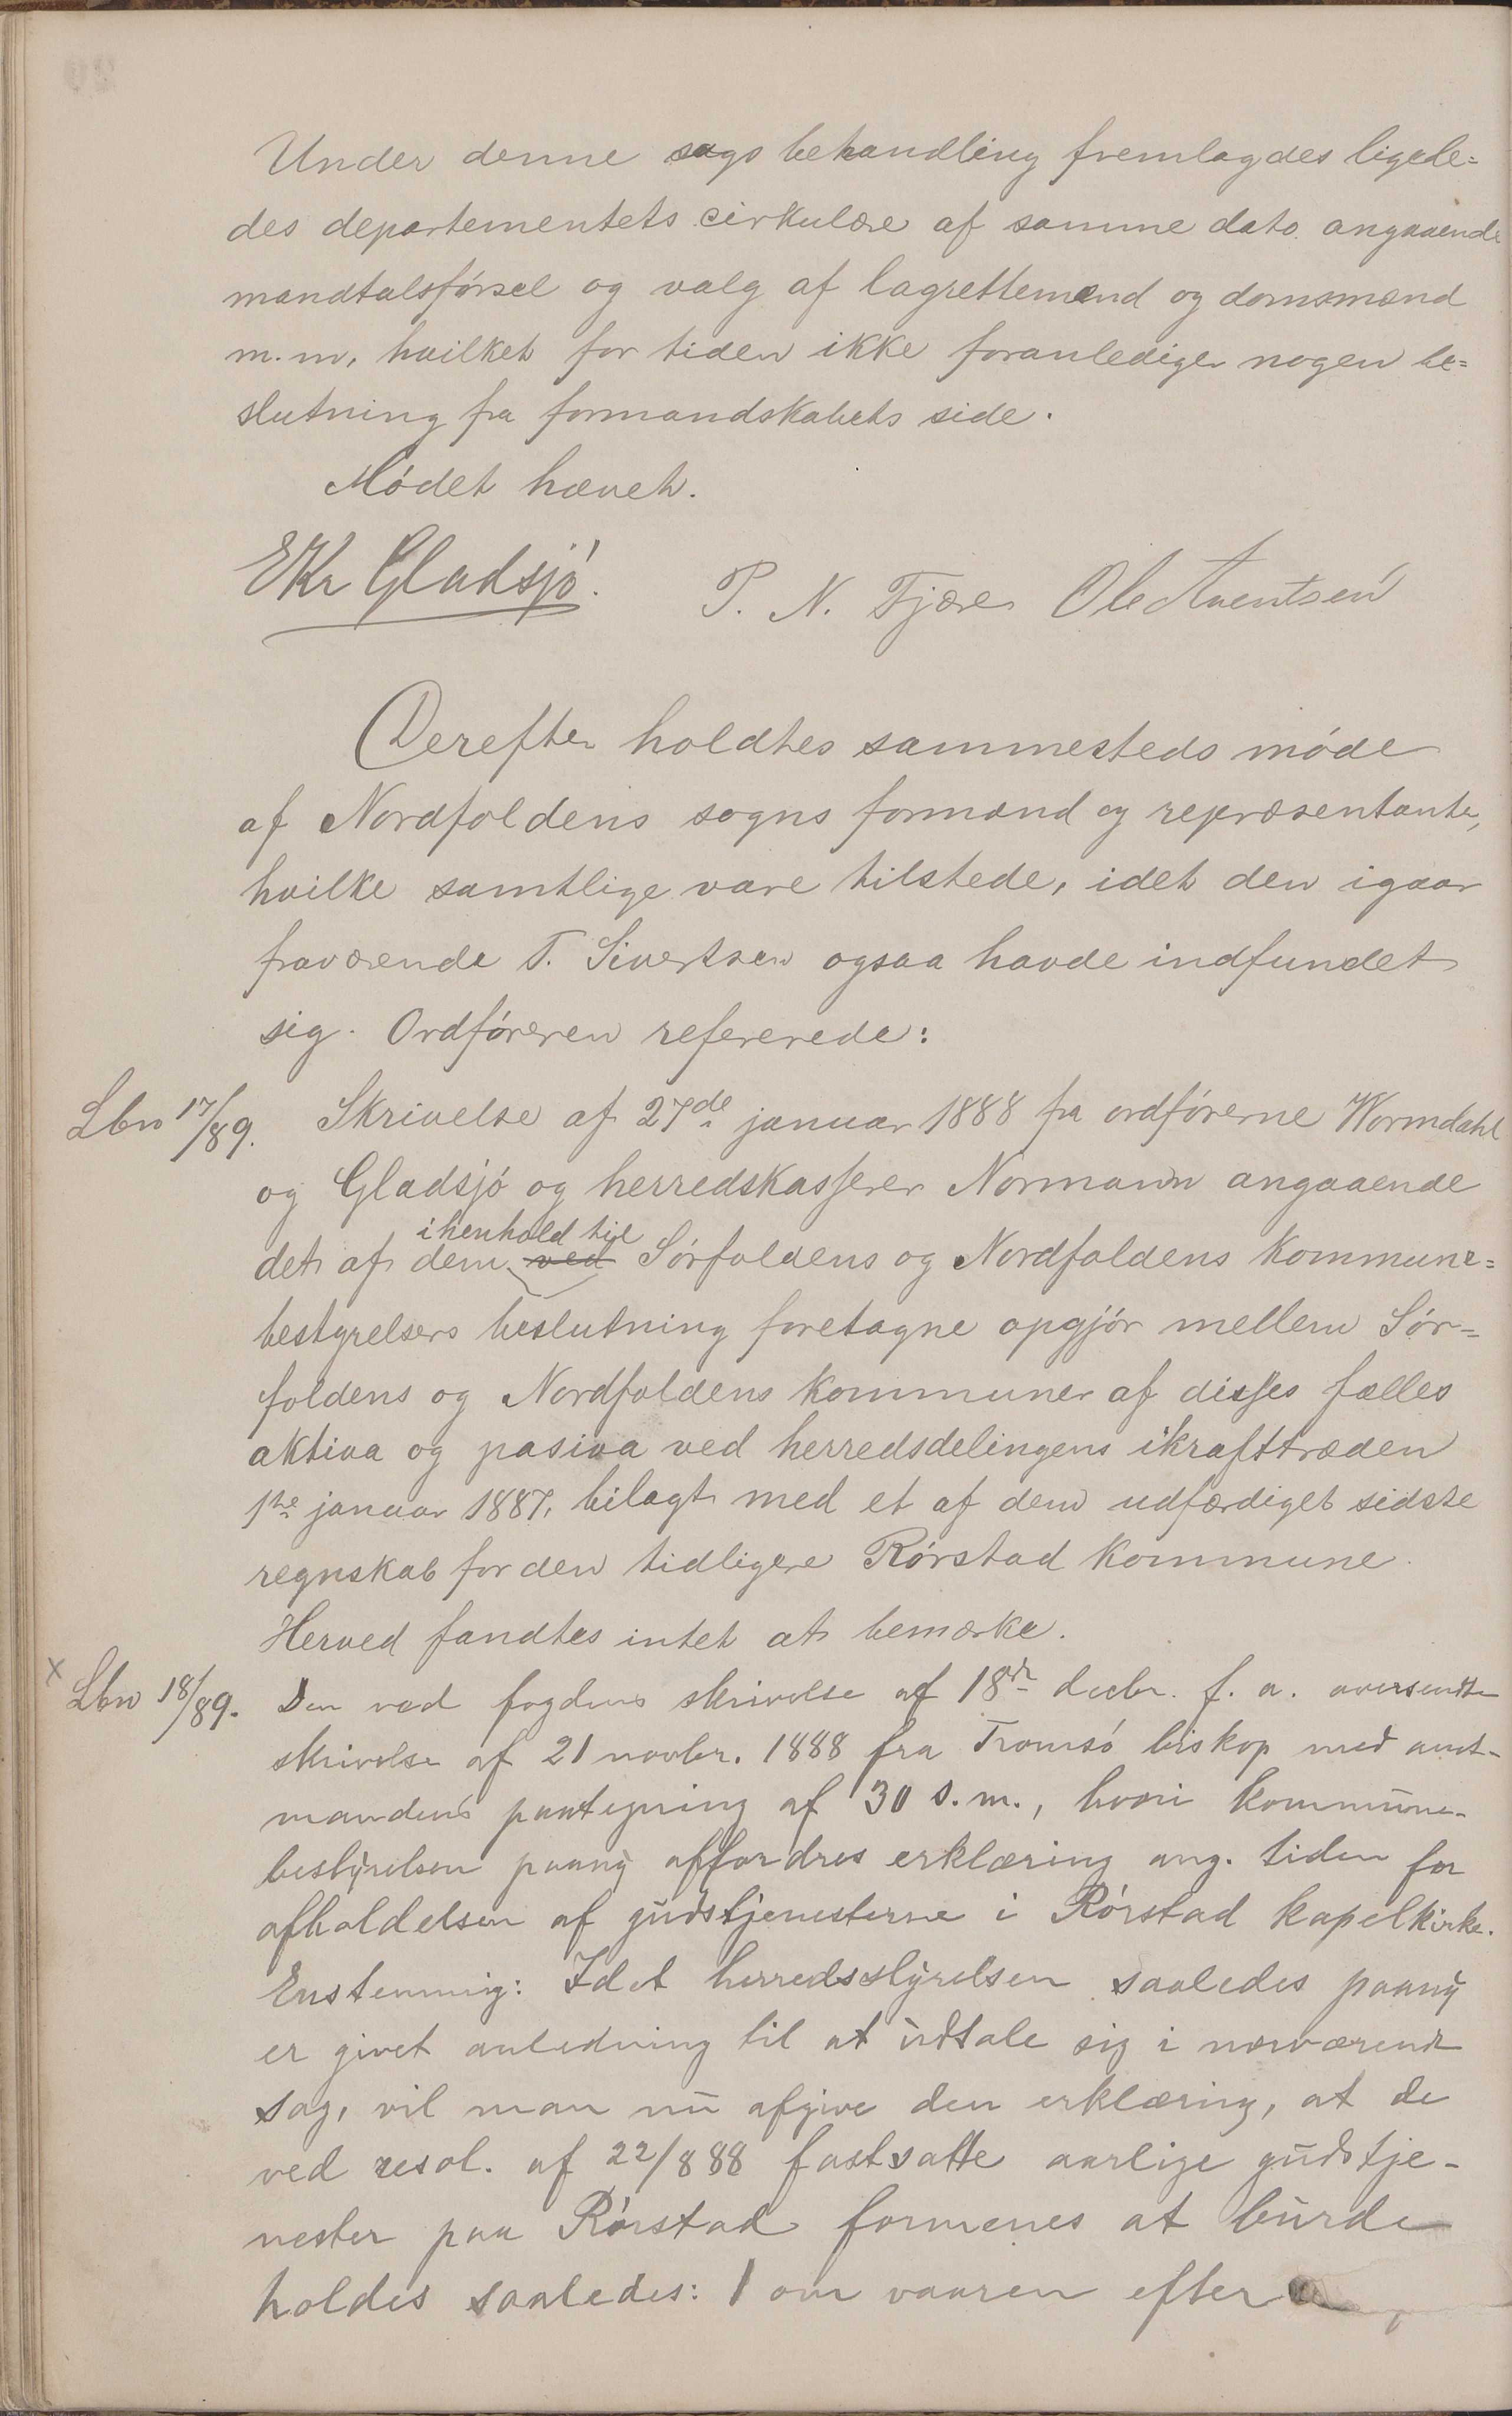 Under denne sags behandling fremlagdes ligele=
des departementets cirkulære af samme dato angaaende
mandtalsførsel og valg af lagrettemænd og domsmænd
m.m, hvilket for tiden ikke foranlediger nogen be=
slutning fra formandskabets side.
Mødet hævet.
EKr Gladsjø. P. N. Fjære Ole Arentsen
Derefter holdtes sammesteds møde
af Nordfoldens sogns formænd og repræsentanter,
hvilke samtlige vare tilstede, idet den igaar
fraværende T. Sivertsen ogsaa havde indfundet
sig. Ordføreren refererede:
Lbn 17/89. Skrivelse af 27de januar 1888 fra ordførerne Wormdahl
og Gladsjø og herredskasserer Normann angaaende
i henhold til
det af dem ved Sørfoldens og Nordfoldens kommune=
bestyrelsers beslutning foretagne opgjør mellem Sør=
foldens og Nordfoldens kommuner af disses fælles
aktiva og pasiva ved herredsdelingens ikrafttræden
1te januar 1887, bilagt med et af dem udfærdiget sidste
regnskab for den tidligere Rørstad kommune.
Herved fandtes intet at bemærke.
x Lbn 18/89. Den ved fogdens skrivelse af 18de decbr. f. a. oversendte
skrivelse af 21 novbr. 1888 fra Tromsø biskop med amt-
mandens paategning af 30 s.m., hvori kommune-
bestyrelsen paany affordres erklæring ang. tiden for
afholdelsen af gudstjenesterne i Rørstad kapelkirke.
Enstemmig: Idet herredsstyrelsen saaledes paany
er givet anledning til at udtale sig i nærværende
sag, vil man nu afgive den erklæring, at de
ved resol. af 22/8 88 fastsatte aarlige gudstje-
nester paa Rørstad formenes at burde
holdes saaledes: 1 om vaaren efter